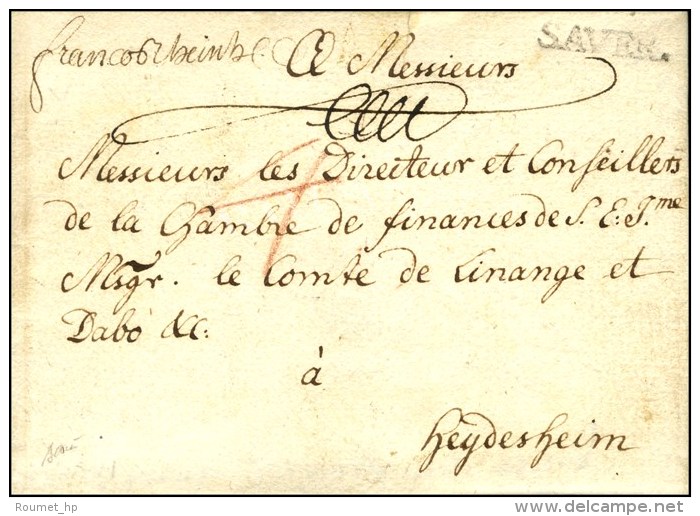 franco Rheinh
SAVER.
A Messieurs
Messieurs les Directeur et Conseillers
de la Chambre de finances de S. E: J.me
Msgr. le Comte de Linange et
Dabo &c:
à
heydesheim
4
Roumet_hp
delcampe.net